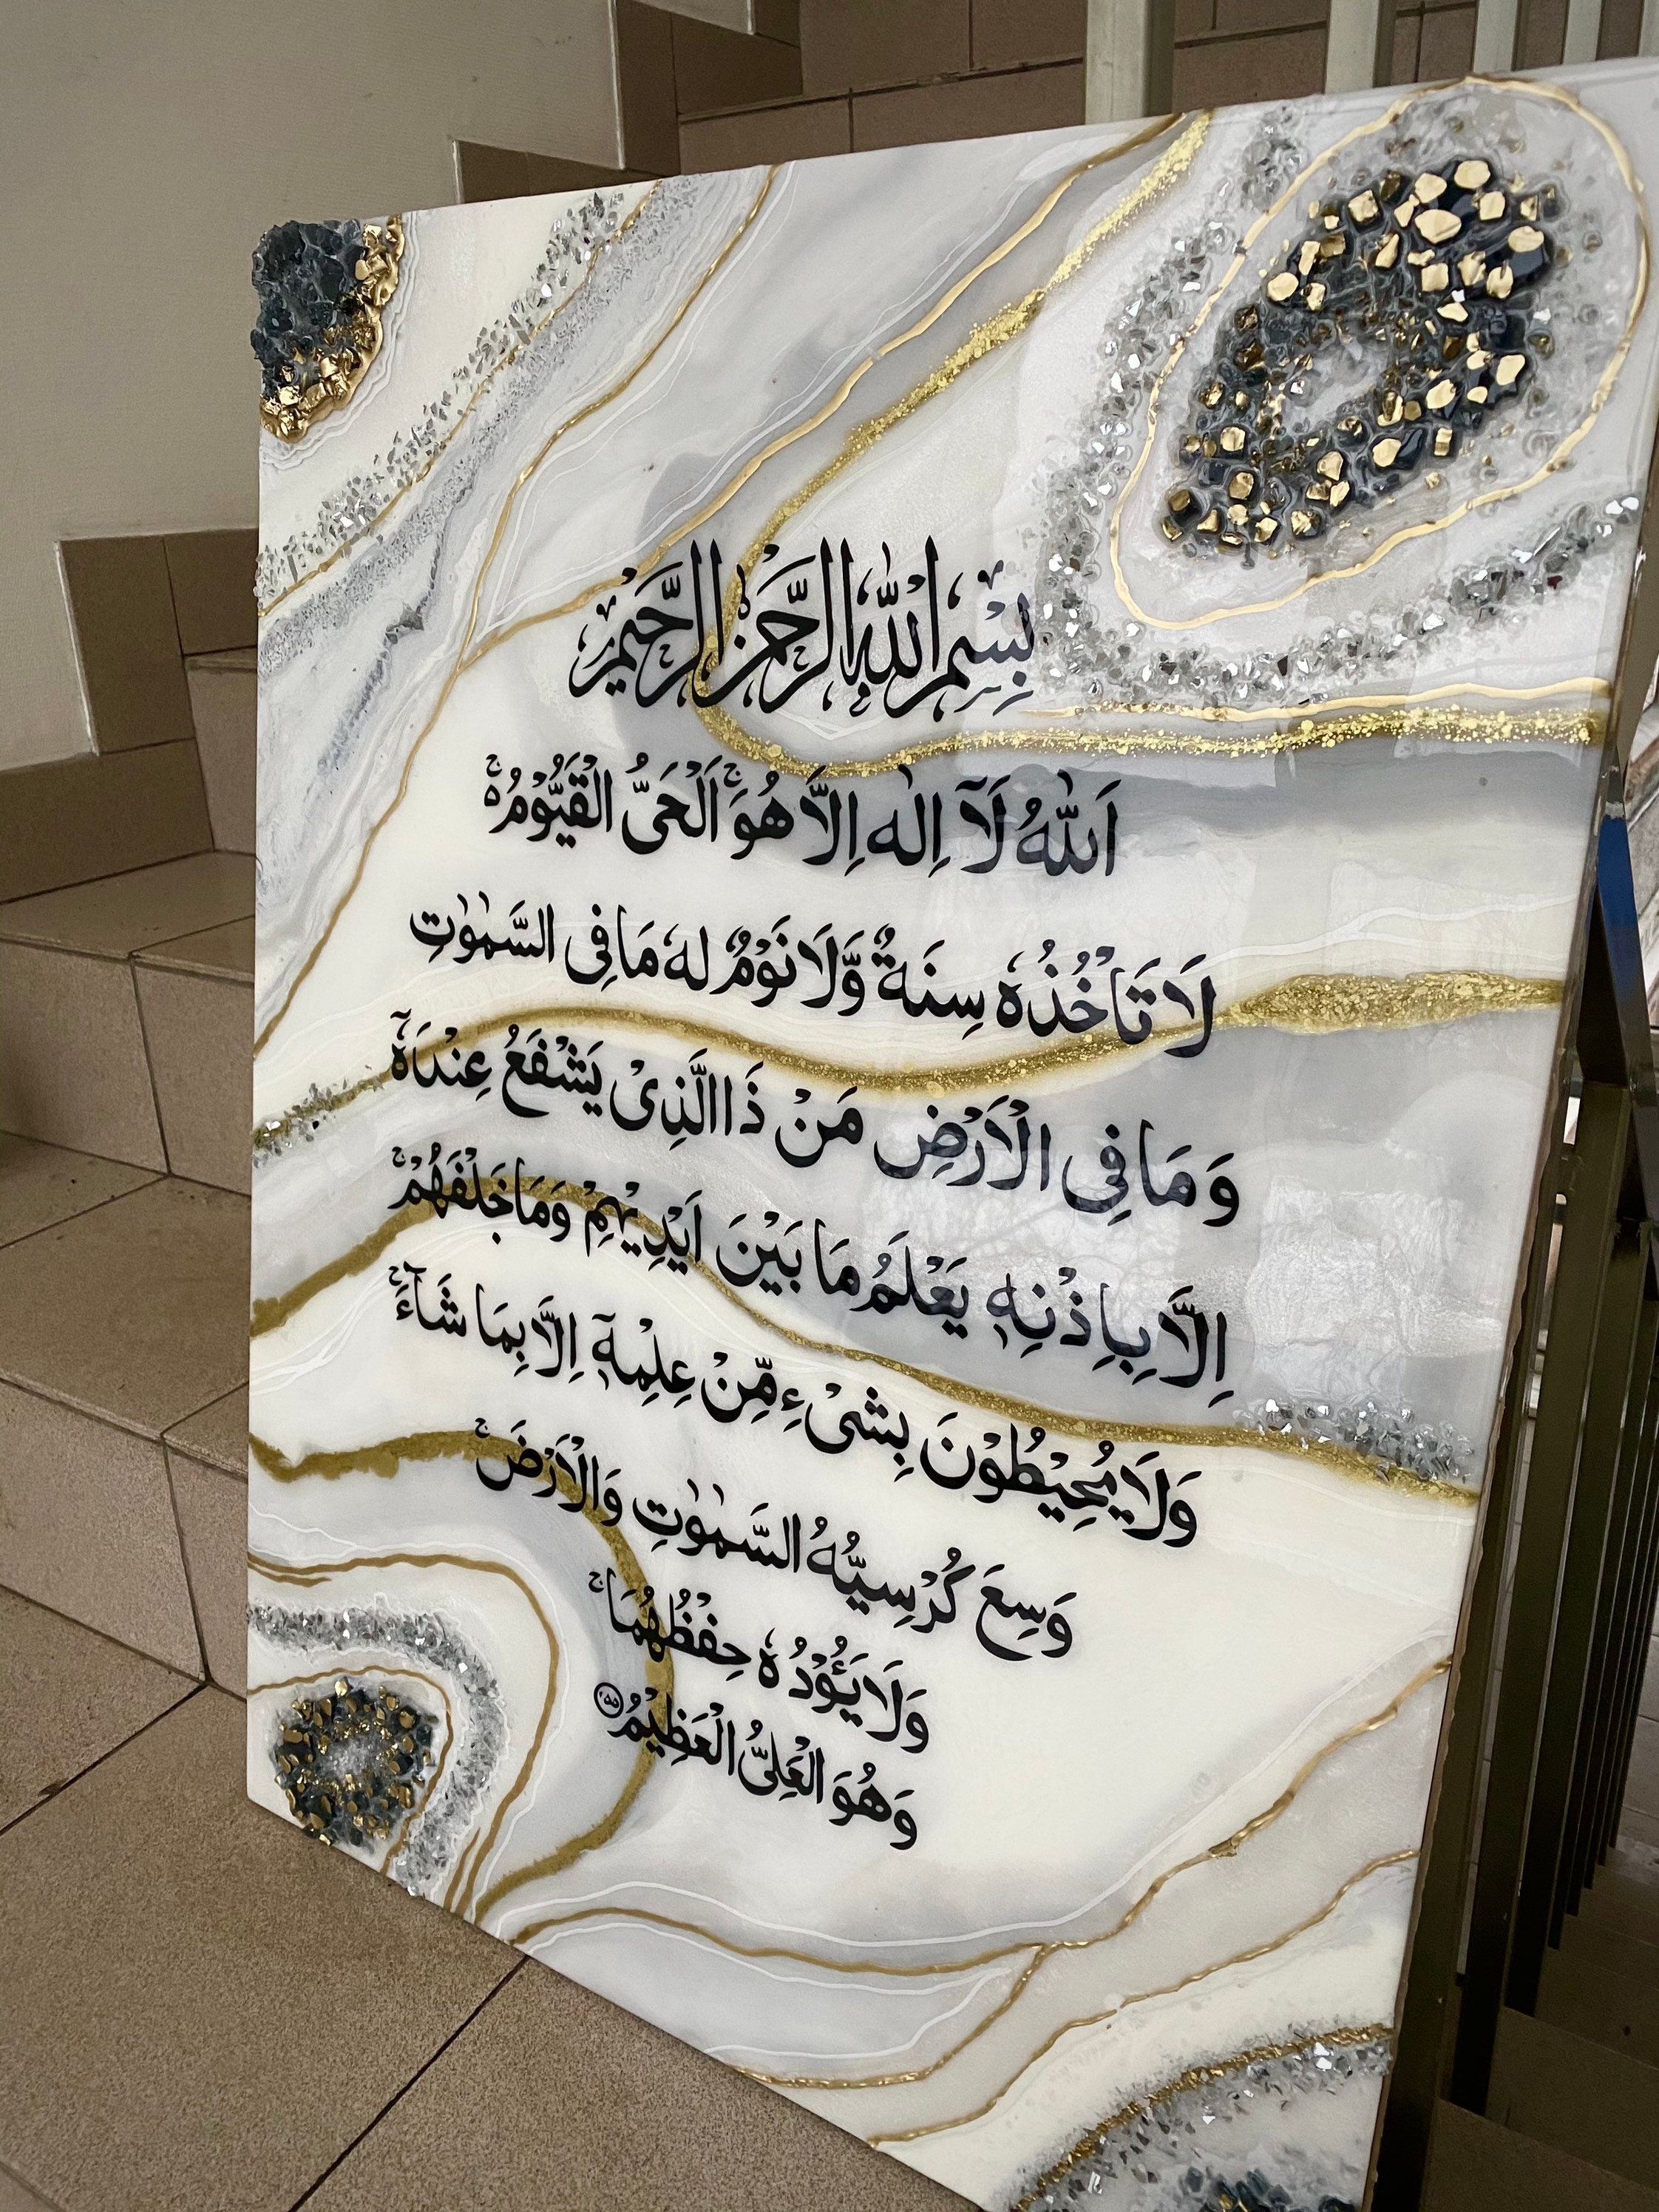 بِسْمِ اللهِ الرَّحْمٰنِ الرَّحِيْمِ
اَللّٰهُ لَآ اِلٰهَ اِلَّا هُوَ ۚ اَلْحَىُّ الْقَيُّوْمُ ۚ۬
لَا تَاْخُذُهٗ سِنَةٌ وَّلَا نَوْمٌ لَهٗ مَا فِى السَّمٰوٰتِ
وَمَا فِى الْاَرْضِ مَنْ ذَا الَّذِىْ يَشْفَعُ عِنْدَهٗٓ
اِلَّا بِاِذْنِهٖ يَعْلَمُ مَا بَيْنَ اَيْدِيْهِمْ وَمَا خَلْفَهُمْ ۚ
وَلَا يُحِيْطُوْنَ بِشَىْءٍ مِّنْ عِلْمِهٖٓ اِلَّا بِمَا شَآءَ ۚ
وَسِعَ كُرْسِيُّهُ السَّمٰوٰتِ وَالْاَرْضَ ۚ
وَلَا يَـُٔوْدُهٗ حِفْظُهُمَا ۚ
وَهُوَ الْعَلِىُّ الْعَظِيْمُ